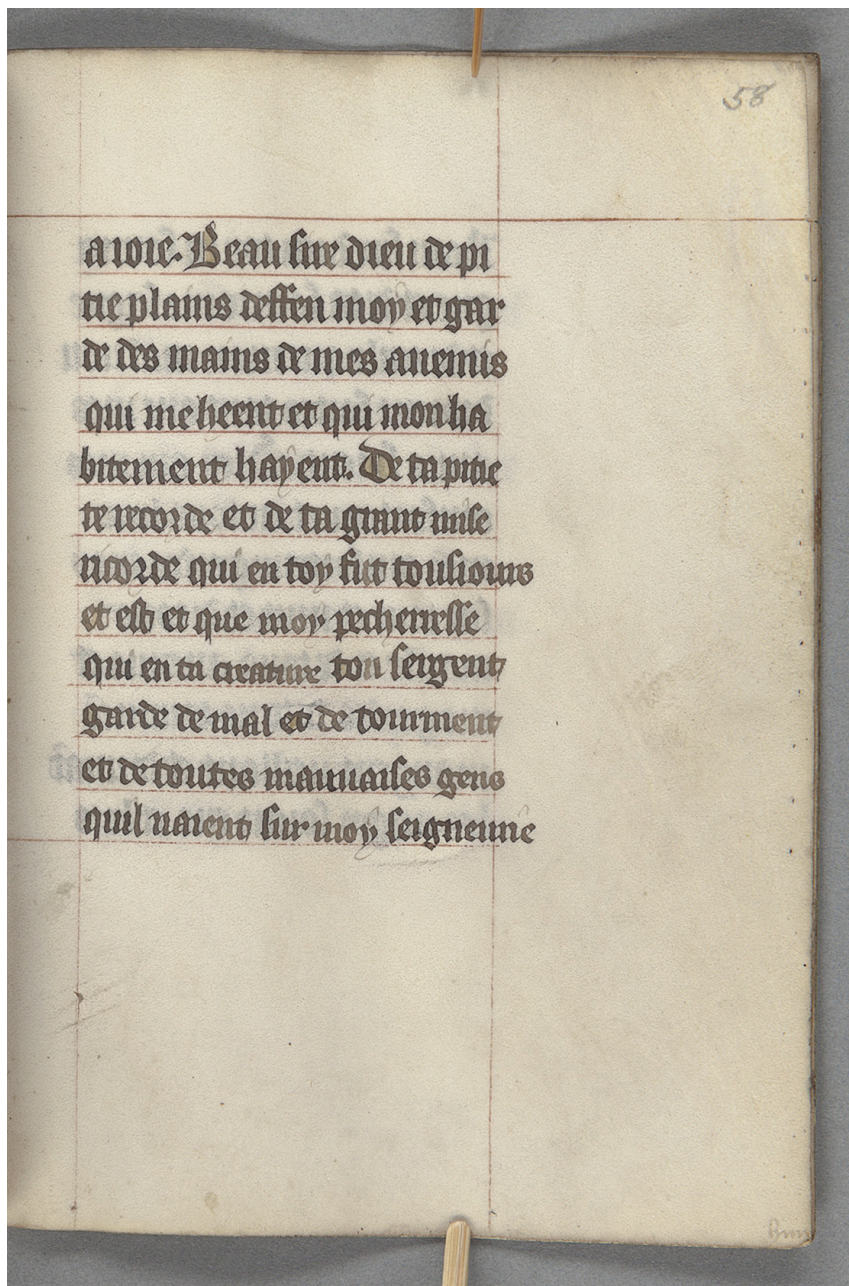 58
a ioie. Beau sire dieu de pi
tie plains deffen moy et gar
de des mains de mes anemis
qui me heent et qui mon ha
bitement hayent. De ta pitie
te recorde et de ta grant mise
ricorde qui en toy fut tousiours
et est et que moy pecherresse
qui en ta creature ton sergent
garde de mal et de tourment
et de toutes mauuaises gens
quil naient sur moy seigneurie